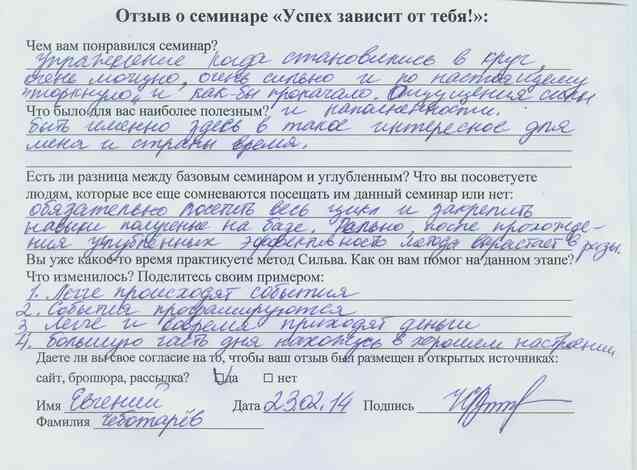 Отзыв о семинаре «Успех зависит от тебя!»:
Чем вам понравился семинар?
Упражнение когда становились в круг,
очень мощно, очень сильно и по настоящему
"торкнуло" и как бы пропагало. Ощущения силы
Что было для вас наиболее полезным? и наполненности.
быть именно здесь в такое интересное для
меня и страны время.
Есть ли разница между базовым семинаром и углубленным? Что вы посоветуете
людям, которые все еще сомневаются посещать им данный семинар или нет:
обязательно посетить весь цикл и закрепить
навыки полученые на базе. Реально, после прохожде-
ния углубленных эффективность метода вырастает в разы.
Вы уже какое-то время практикуете метод Сильва. Как он вам помог на данном этапе?
Что изменилось? Поделитесь своим примером:
1. Легче происходят события
2. События программируются
3 Легче и вовремя приходят деньги
4. большую часть дня нахожусь в хорошем настроении
Даете ли вы свое согласие на то, чтобы ваш отзыв был размещен в открытых источниках:
сайт, брошюра, рассылка? да нет
Имя Евгений Дата 23.02.14 Подпись
Фамилия Чеботарёв